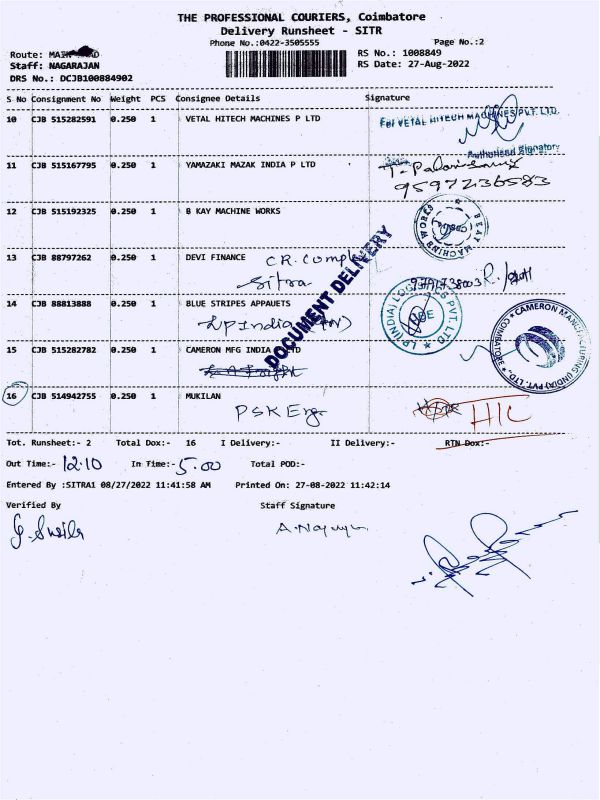 THE PROFESSIONAL COURIERS, Coimbatore
Delivery Runsheet - SITR
Phone No.:0422-3505555 Page No.:2
Route: MAIN ROAD RS No.: 1008849
Staff: NAGARAJAN RS Date: 27-Aug-2022
DRS No.: DCJB100884902
S No Consignment No Weight PCS Consignee Details Signature
10 CJB 515282591 0.250 1 VETAL HITECH MACHINES P LTD
For VETAL HITECH MACHINES PVT. LTD.
Authorised Signatory
11 CJB 515167795 0.250 1 YAMAZAKI MAZAK INDIA P LTD
T. Palanisamy
9597236583
12 CJB 515192325 0.250 1 B KAY MACHINE WORKS
B KAY MACHINE WORKS
13 CJB 88797262 0.250 1 DEVI FINANCE
C.R. Complex
Sitra
DOCUMENT DELIVERY
14 CJB 88813888 0.250 1 BLUE STRIPES APPAUETS
LP India
LP (INDIA) LOGISTICS PVT. LTD
15 CJB 515282782 0.250 1 CAMERON MFG INDIA LTD
CAMERON MANUFACTURING (INDIA) PVT. LTD., COIMBATORE
16 CJB 514942755 0.250 1 MUKILAN
PSK Eng
H/C
Tot. Runsheet:- 2 Total Dox:- 16 I Delivery:- II Delivery:- RTN Dox:-
Out Time:- 12.10 In Time:- 5.00 Total POD:-
Entered By :SITRA1 08/27/2022 11:41:58 AM Printed On: 27-08-2022 11:42:14
Verified By Staff Signature